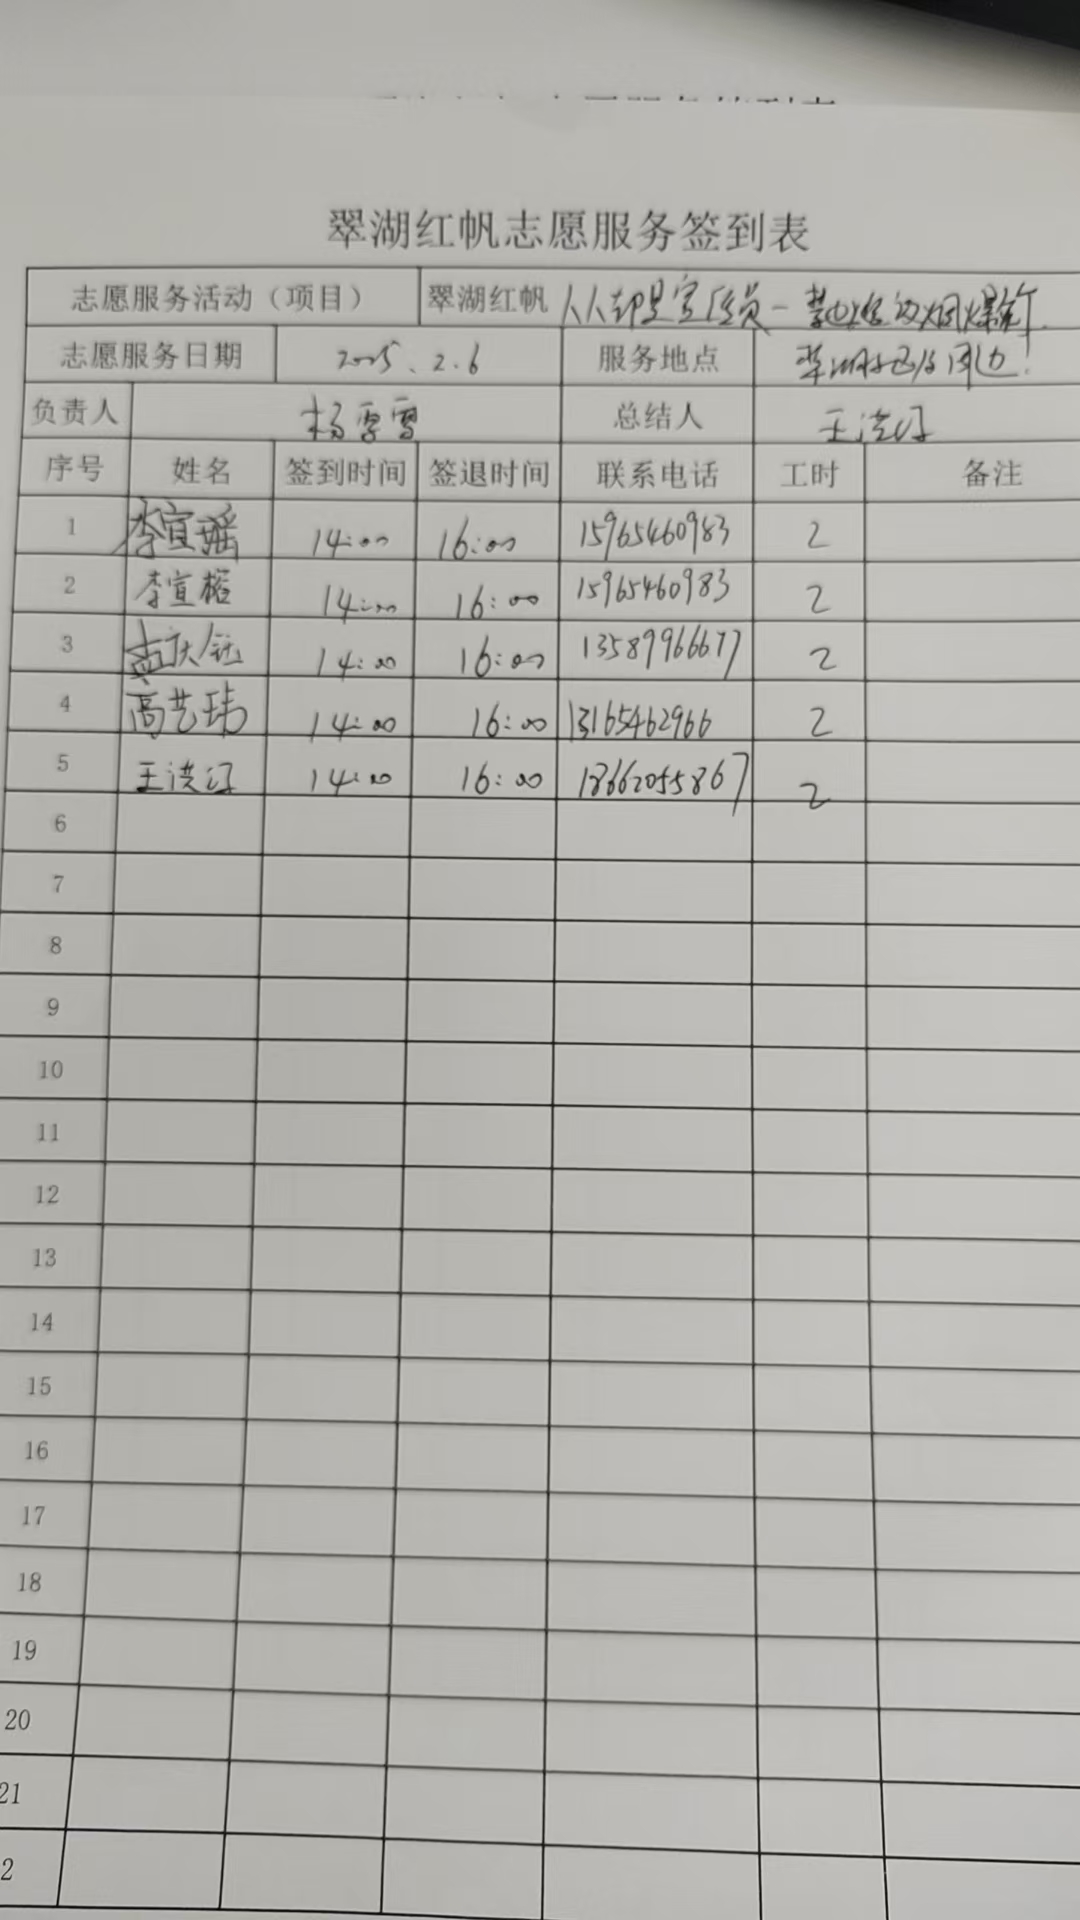 翠湖红帆志愿服务签到表
志愿服务活动（项目） 翠湖红帆 人人都是宣传员一禁燃烟爆竹
志愿服务日期 2025.2.6 服务地点 翠湖社区及周边!
负责人 杨雪雪 总结人 王洪
序号 姓名 签到时间 签退时间 联系电话 工时 备注
1 李宣瑶 14:00 16:00 15965460983 2
2 李宣榕 14:00 16:00 15965460983 2
3 孟庆钰 14:00 16:00 13589966677 2
4 高艺玮 14:00 16:00 13165462966 2
5 王洪 14:00 16:00 18662055867 2
6
7
8
9
10
11
12
13
14
15
16
17
18
19
20
21
2